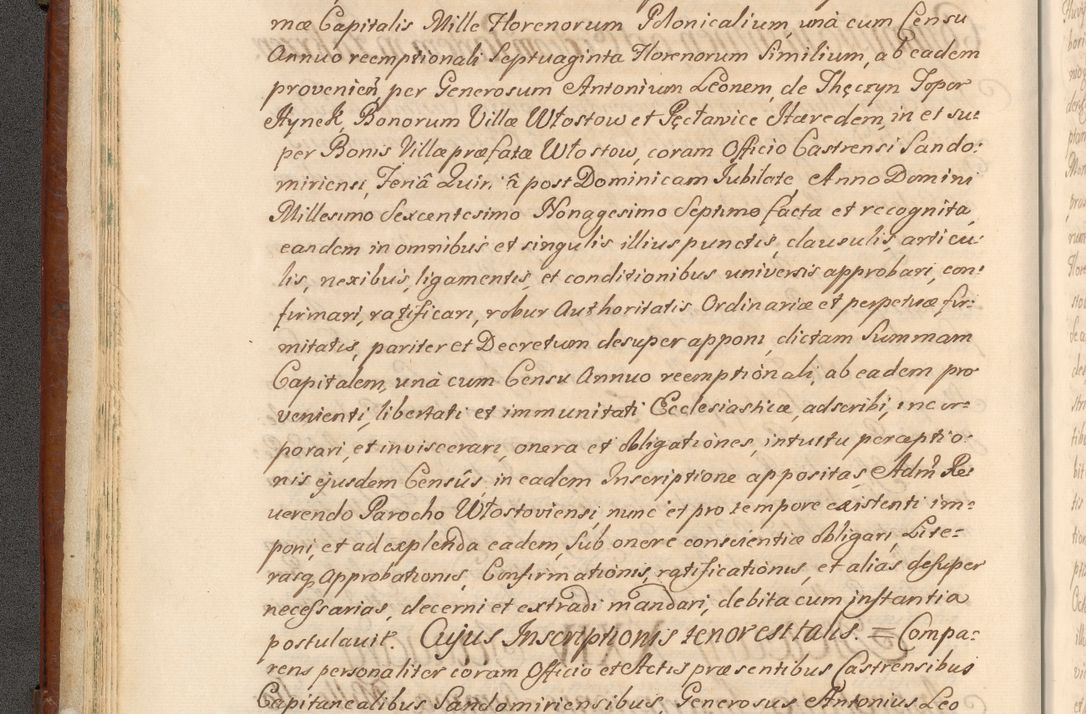 mæ Capitalis Mille Florenorum Polonicalium, unà cum Censu
Annuo reemptionali Septuaginta Florenorum Similium, ab eadem
provenien̄ per Generosum Antonium Leonem, de Thęczyn Topor
Rynek, Bonorum Villæ Włostow et Pęcławice Hæredem, in et su:
per Bonis Villæ præfatæ Włostow, coram Officio Castrensi Sando:
miriensi, Feriâ Quin̄ post Dominicam Iubilate, Anno Domini
Millesimo Sexcentesimo Nonagesimo Septimo facta et recognita,
eandem in omnibus et singulis illius punctis, clausulis, articu:
lis, nexibus, ligamentis, et conditionibus universis approbari, con:
firmari, ratificari, robur Authoritatis Ordinariæ et perpetuæ fir:
mitatis, pariter et Decretum desuper apponi, dictam Summam
Capitalem, unà cum Censu Annuo reemptionali, ab eadem pro
venienti, libertati et immunitati Ecclesiasticæ, adscribi, incor=
porari, et inviscerari, onera et obligationes, intuitu perceptio:
nis ejusdem Censûs, in eadem Inscriptione appositas, Adm̄ Re:
verendo Parocho Włostoviensi, nunc et pro tempore existenti im=
poni, et ad explenda eadem, sub onere conscientiæ obligari, Lite=
rasq, Approbationis, Confirmationis, ratificationis, et alias desuper
necessarias, decerni et extradi mandari, debita cum instantia
postulavit. Cujus Inscriptionis tenor est talis. = Compa=
rens personaliter coram Officio et Actis præsentibus Castrensibus
Capitanealibus Sandomiriensibus, Generosus Antonius Leo